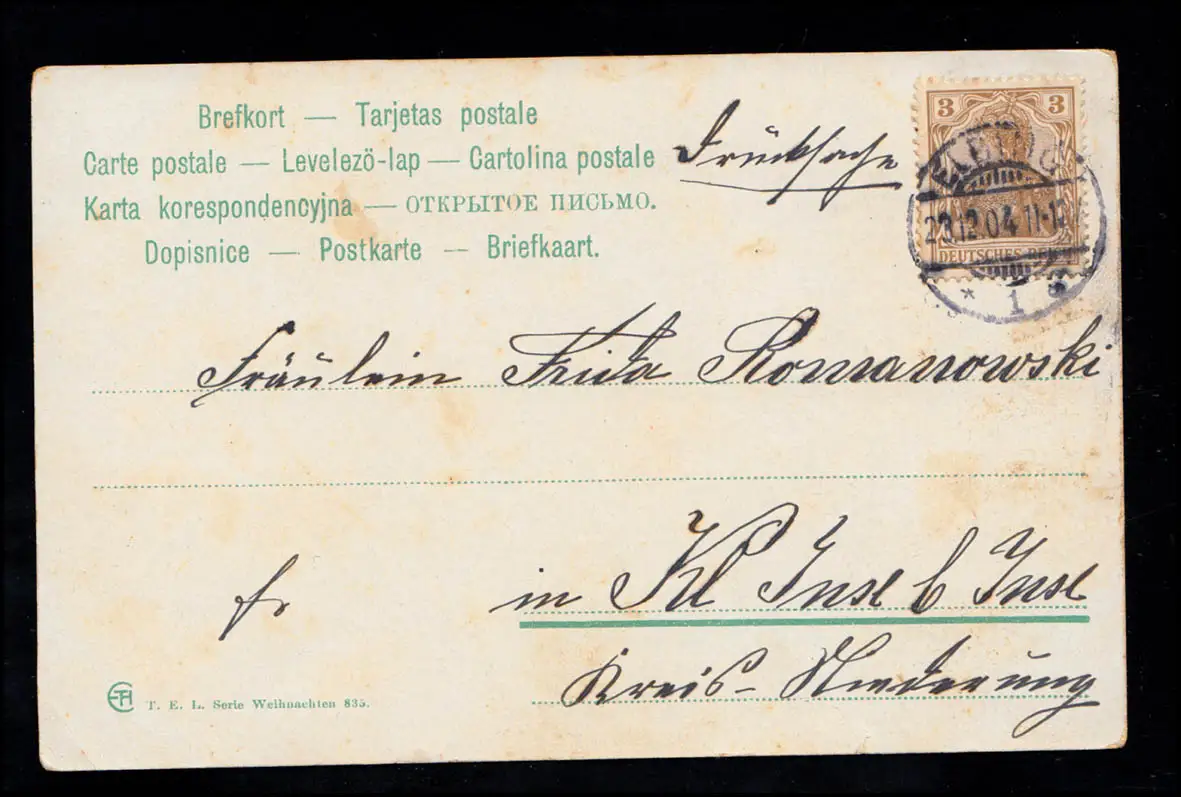 Brefkort — Tarjetas postale
Carte postale — Levelezö-lap — Cartolina postale
Karta korespondencyjna — ОТКРЫТОЕ ПИСЬМО.
Dopisnice — Postkarte — Briefkaart.
Drucksache
3 3
DEUTSCHES REICH
.12.04 11-12
* 1
Fräulein Frida Romanowski
in Kl Inse b Inse
fr
Kreis- Niederung
T. E. L. Serie Weihnachten 835.